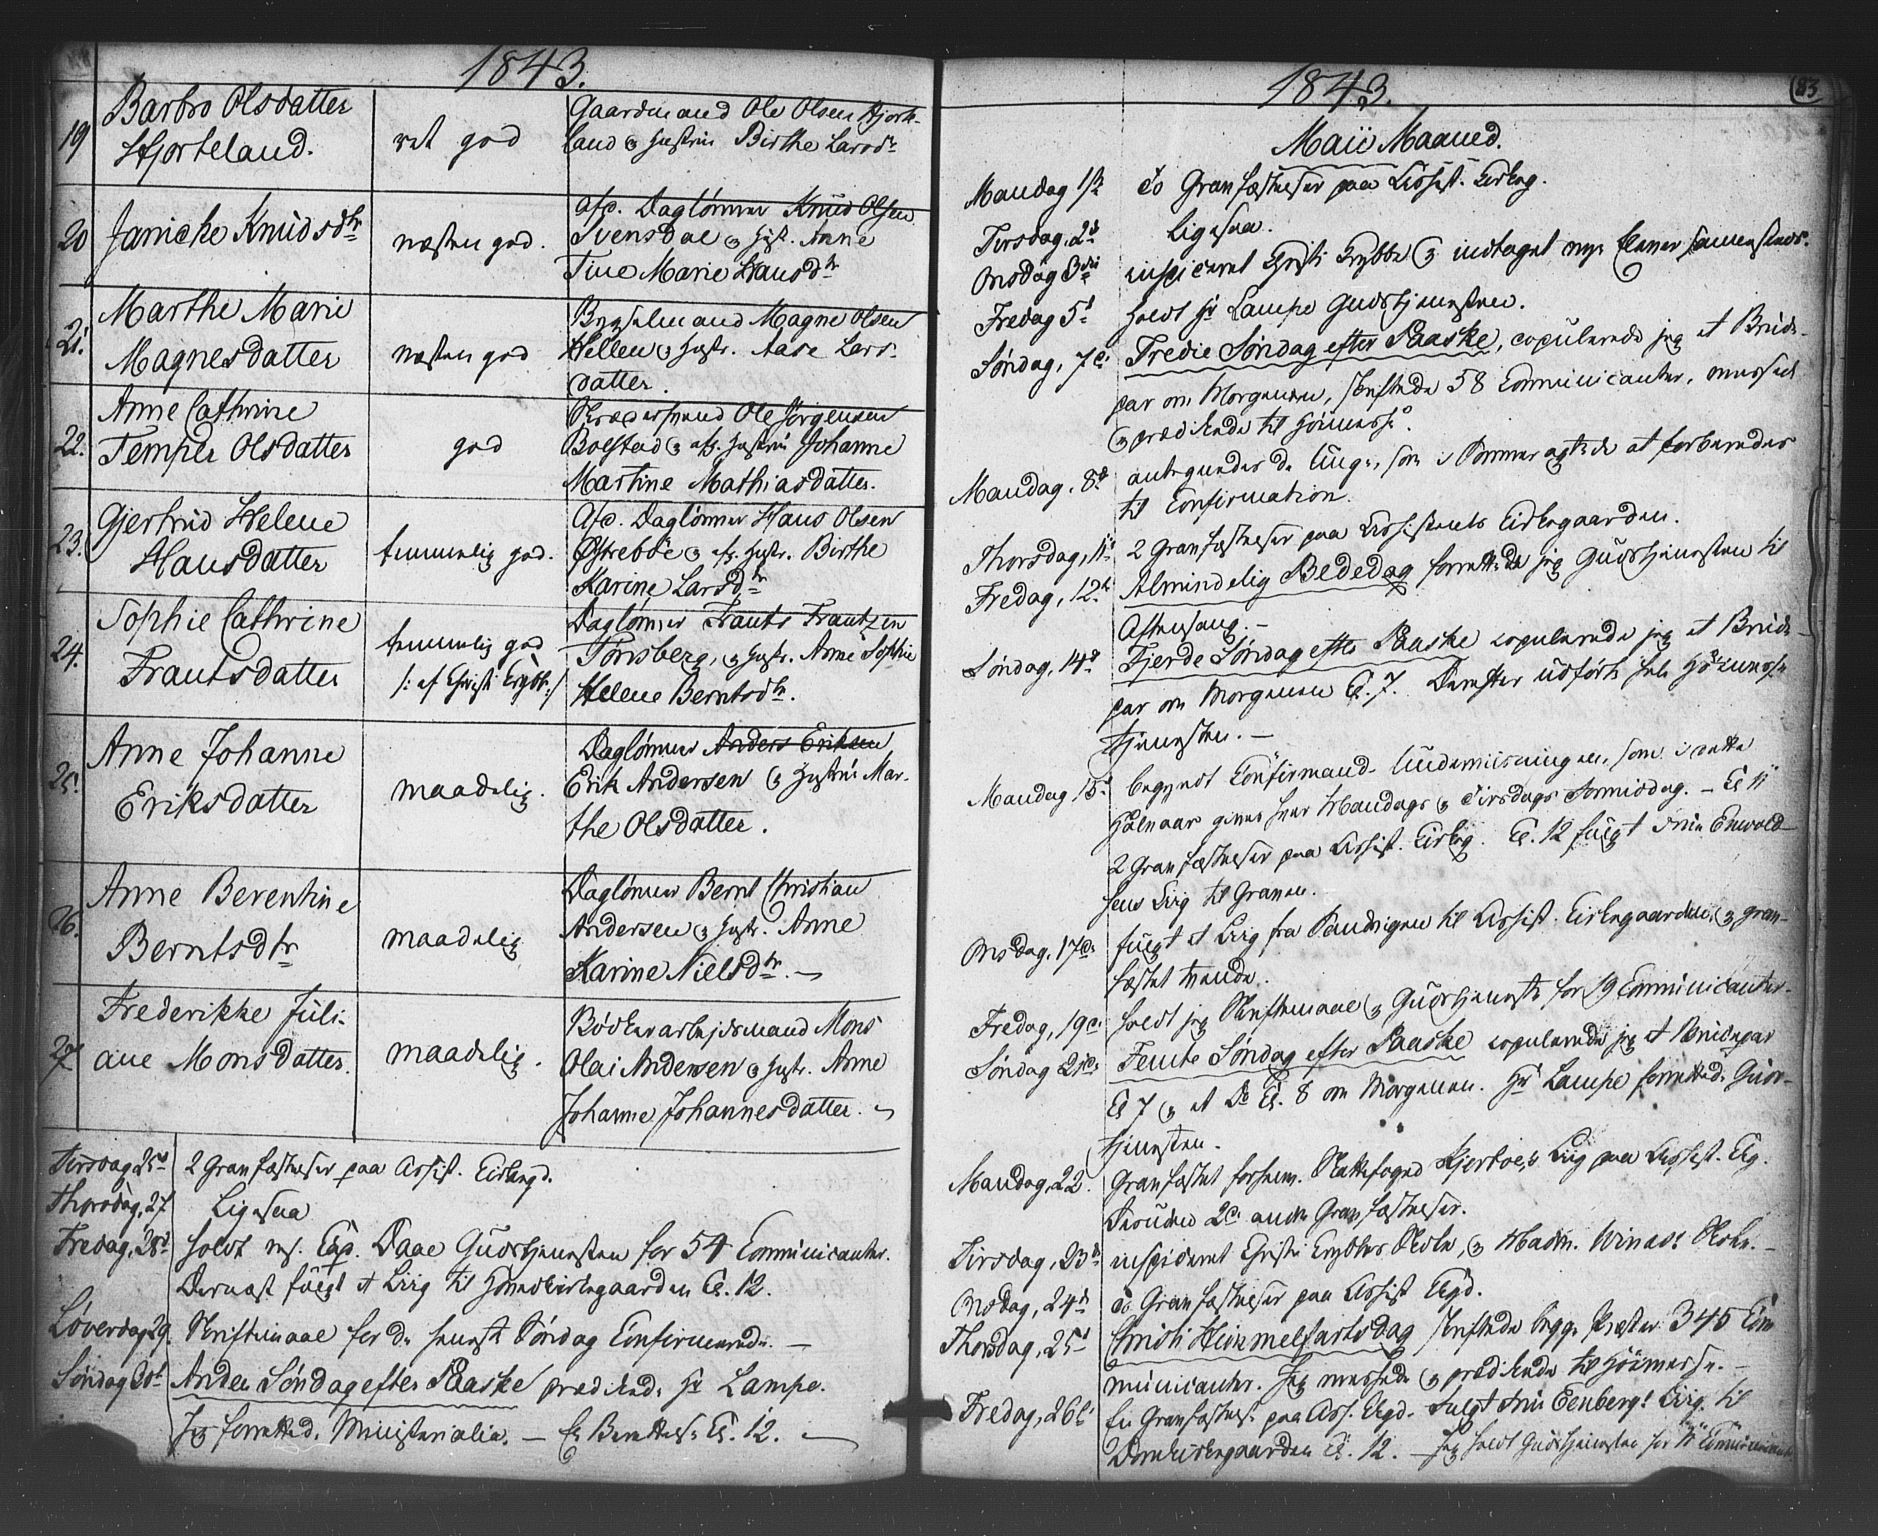 1843.
19 Barbro Olsdatter
Hjorteland.
ret god
Gaardmand Ole Olsen Hjorte-
land & Hustrue Birthe Larsdr
20 Janicke Knudsdtr
næsten god.
afd. Daglønner Knud Olsen
Svensdal & Hust. Anne
Tine Marie Hansdtr
21. Marthe Marie
Magnesdatter
næsten god
Magne Olsen
Hellen & Hustr. Aase Lars-
datter.
22. Anne Cathrine
Temper Olsdatter
god
Ole Jørgensen
Bolstad & afd. Hustrue Johanne
Martine Mathiasdatter.
23. Gjertrud Helene
Hansdatter
temmelig god.
Afd. Daglønner Hans Olsen
Østrebøe & afd. Hustr. Birthe
Karine Larsdtr
24. Sophie Cathrine
Frantsdatter
temmelig god
/: af Christi Krybbe :/
Daglønner Frants Frantzen
Tønsberg, & Hustr. Anne Sophie
Helene Berntsdtr.
25. Anne Johanne
Eriksdatter
maadelig.
Daglønner Anders Eriksen
Erik Andersen & Hustrue Mar-
the Olsdatter.
26. Anne Berentine
Berntsdtr
maadelig
Daglønner Bernt Christian
Andersen & Hustr. Anne
Karine Nielsdtr. —
27 Frederikke Juli-
ane Monsdatter.
maadelig.
Bødkerarbejdsmand Mons
Olai Andersen & Hustr. Anne
Johanne Johannesdatter.
Tirsdag 25d 2 Gravfæstelser paa Assist. Kirkegd.
Thorsdag, 27 Ligesaa
Fredag, 28d holdt res. Cap. Daae Gudstjenesten for 54 Communicanter.
Dernæst fulgt et Liig til Kl. 12.
Løverdag 29. Skriftemaal for de Søndag Confirmerede. —
Søndag 30d Anden Søndag efter Paaske prædikede Hr Lampe.
Jeg forrettede Ministerialia. — Kl. 12. —
1843.
83
Maii Maaned.
Mandag 1ste to Gravfæstelser paa Assist. Kirkeg.
Tirsdag, 2d Ligesaa.
Onsdag 3die inspiceret Christi Krybbe & indtaget nye Elever
Fredag 5t holdt Hr Lampe Gudstjenesten.
Søndag, 7de Tredie Søndag efter Paaske, copulerede jeg et Brude-
par om Morgenen, skriftede 58 Communicanter, messede
& prædikede til Høimesse.
Mandag, 8de antegnedes de Unge, som i Sommer agtede at forberedes
til Confirmation.
Thorsdag, 11te 2 Gravfæstelser paa Assistents Kirkegaarden.
Fredag, 12te Almindelig Bededag forrettede jeg Gudstjenesten til
Aftensang. —
Søndag, 14de Fjerde Søndag efter Paaske copulerede jeg et Brude-
par om Morgenen Kl. 7. Derefter udførte hele Høimesse-
tjenesten. —
Mandag 15de begyndt Confirmand-Underviisningen, som i dette
Halvaar gives hver Mandags & Tirsdags Formiddag. — Kl 11
2 Gravfæstelser paa Assist. Kirkeg. Kl. 12 fulgt Frue Enwold-
sens Liig til Graven.
Onsdag, 17de fulgt et Liig fra Sandvigen til Assist. Kirkegaarden, & grav-
fæstet tvende.
Fredag, 19de holdt jeg Skriftemaal & Gudstjeneste for 19 Communicanter.
Søndag 21de Femte Søndag efter Paaske copulerede jeg et Brudepar
Kl 7 & et Do Kl. 8 om Morgenen. Hr Lampe forrettede Guds-
tjenesten.
Mandag, 22. Gravfæstet forhenv. Skattefoged Kjerboe's Liig paa Assist. Kig.
Desuden 2de andre Gravfæstelser.
Tirsdag, 23de inspiceret Christi Krybbes Skole, & Madm. Winds Skole. —
Onsdag, 24de to Gravfæstelser paa Assist Kigd.
Thorsdag, 25d Christi Himmelfartsdag skriftede begge Præster 345 Com-
municanter. Jeg messede & prædikede til Høimesse. —
Fredag, 26de En Gravfæstelse paa Ass. Kigd. Fulgt Frue Liig til
Domkirkegaarden Kl. 12. — Jeg holdt Gudstjenesten for 11 Communicanter